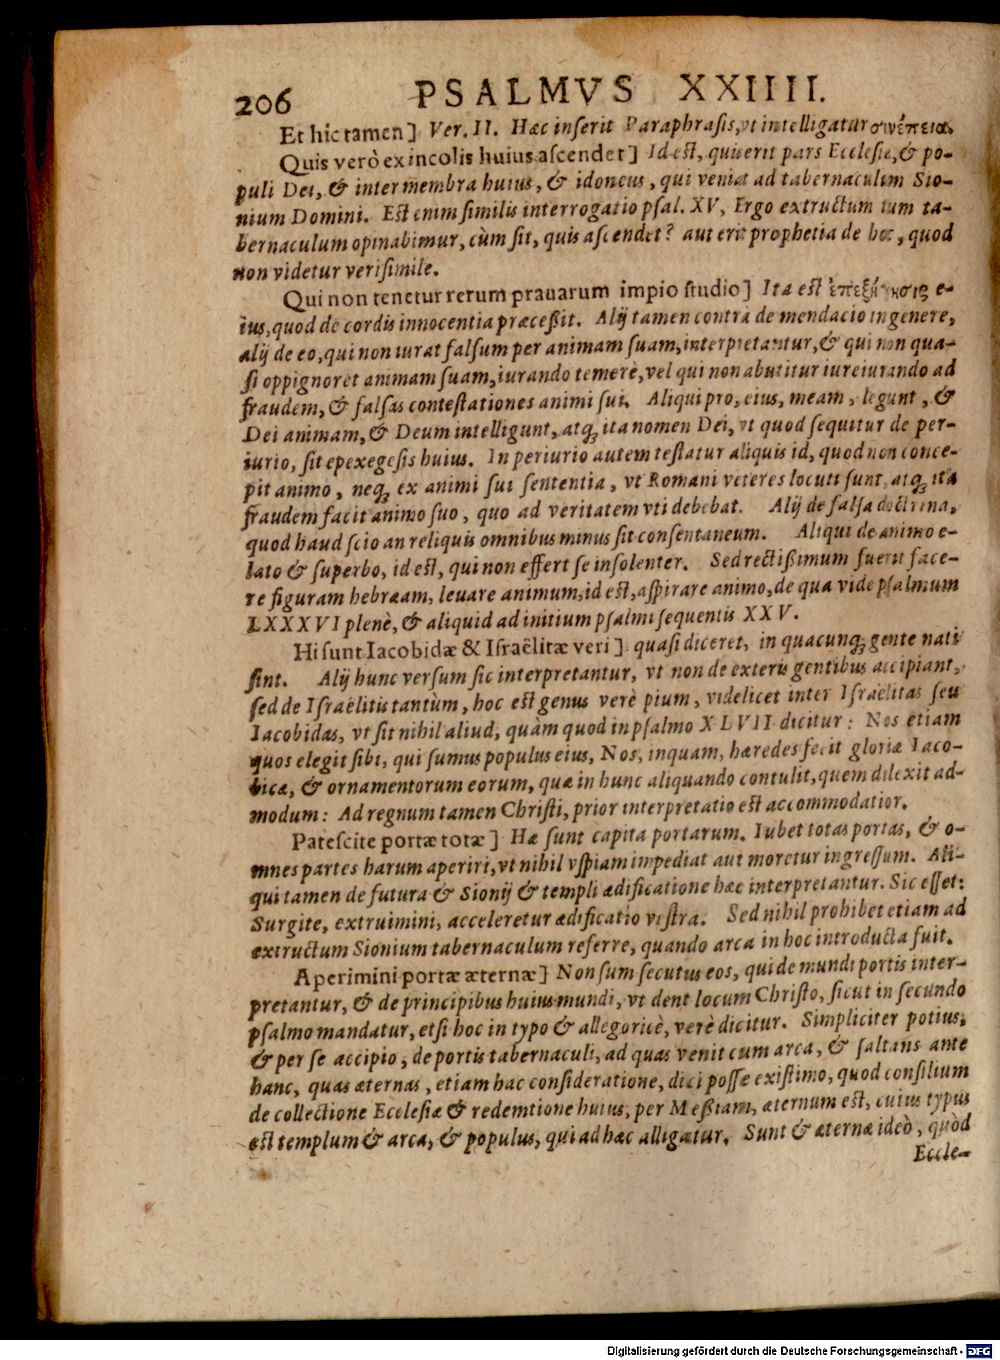 206 PSALMVS XXIIII.
Et hic tamen] Ver. II. Hæc inserit Paraphrasis, vt intelligatur συνέπεια.
Quis verò ex incolis huius ascendet] Id est, quis erit pars Ecclesiæ, & po-
puli Dei, & inter membra huius, & idoneus, qui veniat ad tabernaculum Sio-
nium Domini. Est enim similis interrogatio psal. XV, Ergo extructum tum ta-
bernaculum opinabimur, cùm sit, quis ascendet? aut erit prophetia de hoc, quod
non videtur verisimile.
Qui non tenetur rerum prauarum impio studio] Ita est ἐπεξήγησις e-
ius, quod de cordis innocentia præceßit. Alij tamen contrà de mendacio in genere,
alij de eo, qui non iurat falsum per animam suam, interpretantur, & qui non qua-
si oppignoret animam suam, iurando temerè, vel qui non abutitur iureiurando ad
fraudem, & falsas contestationes animi sui. Aliqui pro, eius, meam, legunt, &
Dei animam, & Deum intelligunt, atq; ita nomen Dei, vt quod sequitur de per-
iurio, sit epexegesis huius. In periurio autem testatur aliquis id, quod non conce-
pit animo, neq; ex animi sui sententia, vt Romani veteres locuti sunt, atq; ita
fraudem facit animo suo, quo ad veritatem vti debebat. Alij de falsa doctrina,
quod haud scio an reliquis omnibus minus sit consentaneum. Aliqui de animo e-
lato & superbo, id est, qui non effert se insolenter. Sed rectißimum fuerit face-
re figuram hebræam, leuare animum, id est, aspirare animo, de qua vide psalmum
LXXXVI plenè, & aliquid ad initium psalmi sequentis XXV.
Hi sunt Iacobidæ & Israëlitæ veri] quasi diceret, in quacunq; gente nati
sint. Alij hunc versum sic interpretantur, vt non de exteris gentibus accipiant,
sed de Israëlitis tantùm, hoc est genus verè pium, videlicet inter Israëlitas seu
Iacobidas, vt sit nihil aliud, quàm quod in psalmo XLVII dicitur: Nos etiam
quos elegit sibi, qui sumus populus eius, Nos, inquam, hæredes fecit gloriæ Iaco-
bicæ, & ornamentorum eorum, quæ in hunc aliquando contulit, quem dilexit ad-
modum: Ad regnum tamen Christi, prior interpretatio est accommodatior.
Patescite portæ totæ] Hæ sunt capita portarum. Iubet totas portas, & o-
mnes partes harum aperiri, vt nihil vspiam impediat aut moretur ingressum. Ali-
qui tamen de futura & Sionij & templi ædificatione hæc interpretantur. Sic esset:
Surgite, extruimini, acceleretur ædificatio vestra. Sed nihil prohibet etiam ad
extructum Sionium tabernaculum referre, quando arca in hoc introducta fuit.
Aperimini portæ æternæ] Non sum secutus eos, qui de mundi portis inter-
pretantur, & de principibus huius mundi, vt dent locum Christo, sicut in secundo
psalmo mandatur, etsi hoc in typo & allegoricè, verè dicitur. Simpliciter potius,
& per se accipio, de portis tabernaculi, ad quas venit cum arca, & saltans ante
hanc, quas æternas, etiam hac consideratione, dici posse existimo, quod consilium
de collectione Ecclesiæ & redemtione huius, per Meßiam, æternum est, cuius typus
est templum & arca, & populus, qui ad hæc alligatur. Sunt & æternæ ideò, quòd
Eccle-
Digitalisierung gefördert durch die Deutsche Forschungsgemeinschaft - DFG